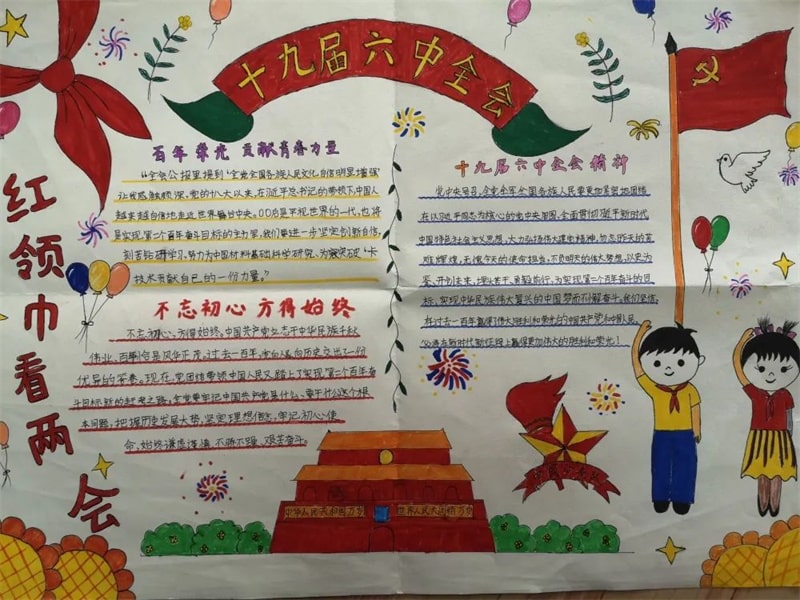 十九届六中全会
红领巾看两会
百年荣光 贡献青春力量
"全会公报里提到'全党全国各族人民文化自信明显增强'
让我感触颇深,党的十八大以来,在习近平总书记的带领下,中国人
越来越自信地走近世界舞台中央。00后是平视世界的一代,也将
是实现第二个百年奋斗目标的主力军,我们要进一步坚定创新自信,
刻苦钻研学习,努力为中国材料基础科学研究、为突破"卡
技术贡献自己的一份力量。"
不忘初心 方得始终
不忘初心、方得始终。中国共产党立志于中华民族千秋
伟业,百年恰是风华正茂。过去一百年,党向人民向历史交出了一份
优异的答卷。现在,党团结带领中国人民又踏上了实现第二个百年奋
斗目标新的赶考之路。全党要牢记中国共产党是什么、要干什么这个根
本问题,把握历史发展大势,坚定理想信念,牢记初心使
命,始终谦虚谨慎、不骄不躁、艰苦奋斗。
十九届六中全会精神
党中央号召,全党全军全国各族人民要更加紧密地团结
在以习近平同志为核心的党中央周围,全面贯彻习近平新时代
中国特色社会主义思想,大力弘扬伟大建党精神,勿忘昨天的苦
难辉煌,无愧今天的使命担当,不负明天的伟大梦想,以史为
鉴、开创未来,埋头苦干、勇毅前行,为实现第二个百年奋斗目
标、实现中华民族伟大复兴的中国梦而不懈奋斗。我们坚信,
在过去一百年赢得了伟大胜利和荣光的中国共产党和中国人民,
必将在新时代新征程上赢得更加伟大的胜利和荣光!
中华人民共和国万岁
世界人民大团结万岁
中国少先队